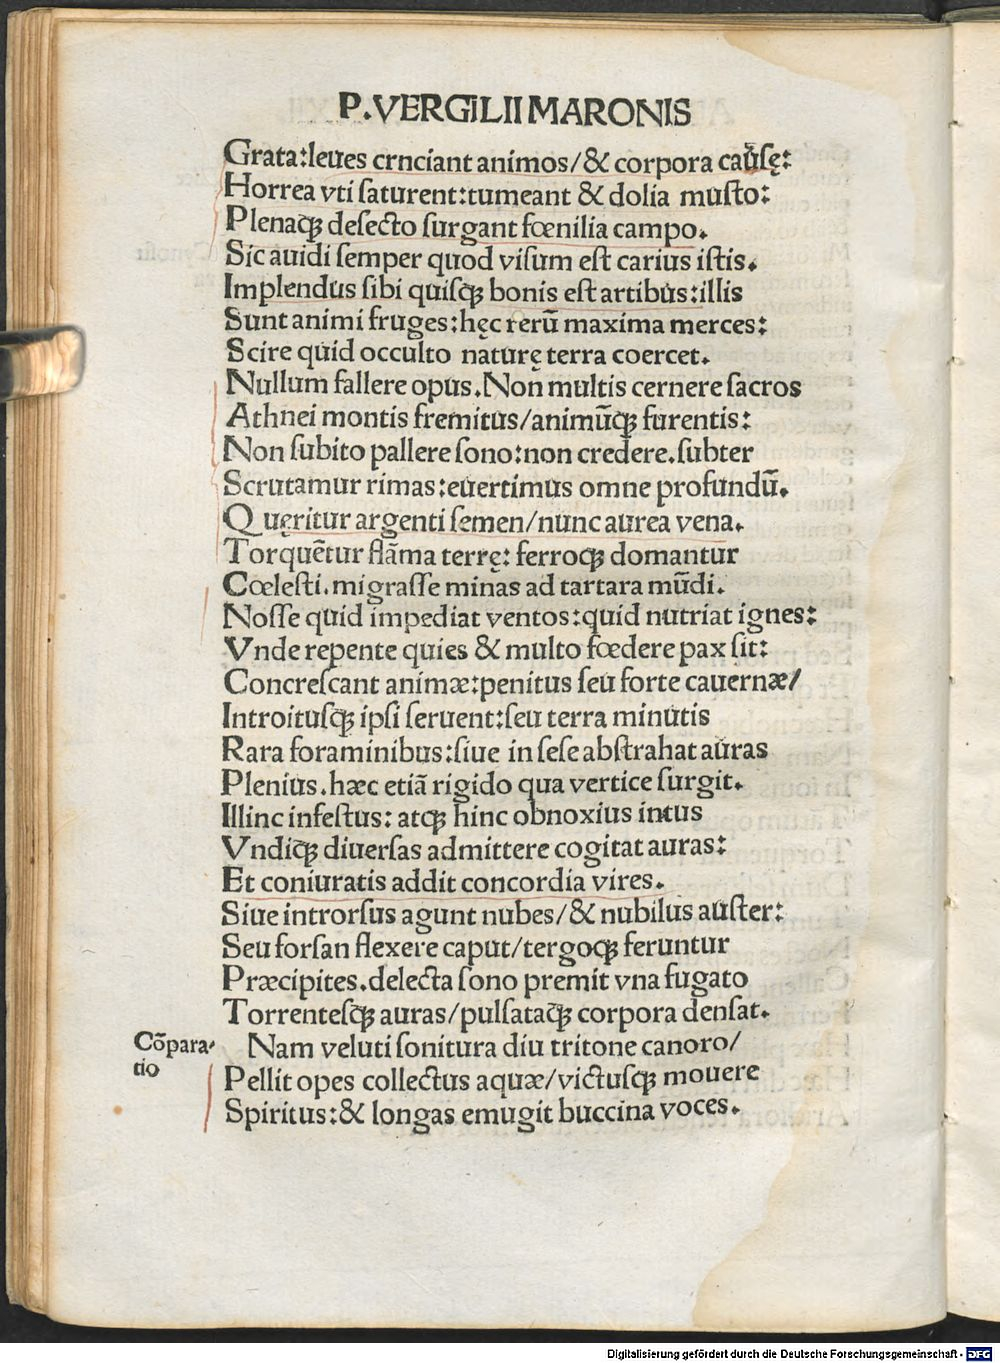 P.VERGILII MARONIS
Grata:leues crnciant animos/& corpora caűsę:
Horrea vti saturent:tumeant & dolia musto:
Plenaqꝫ desecto surgant fœnilia campo.
Sic auidi semper quod visum est carius istis.
Implendus sibi quisqꝫ bonis est artibus:illis
Sunt animi fruges:hęc rerū maxima merces:
Scire quid occulto naturę terra coercet.
Nullum fallere opus.Non multis cernere sacros
Athnei montis fremitus/animūqꝫ furentis:
Non subito pallere sono:non credere.subter
Scrutamur rimas:euertimus omne profundū.
Quęritur argenti semen/nunc aurea vena.
Torquētur flāma terrę: ferroqꝫ domantur
Cœlesti.migrasse minas ad tartara mūdi.
Nosse quid impediat ventos:quid nutriat ignes:
Vnde repente quies & multo fœdere pax sit:
Concrescant animæ:penitus seu forte cauernæ/
Introitusqꝫ ipsi seruent:seu terra minutis
Rara foraminibus:siue in sese abstrahat auras
Plenius.hæc etiā rigido qua vertice surgit.
Illinc infestus: atqꝫ hinc obnoxius intus
Vndiqꝫ diuersas admittere cogitat auras:
Et coniuratis addit concordia vires.
Siue introrsus agunt nubes/& nubilus auster:
Seu forsan flexere caput/tergoqꝫ feruntur
Præcipites.delecta sono premit vna fugato
Torrentesqꝫ auras/pulsataqꝫ corpora densat.
Cōpara-
tio
Nam veluti sonitura diu tritone canoro/
Pellit opes collectus aquæ/victusqꝫ mouere
Spiritus:& longas emugit buccina voces.
Digitalisierung gefördert durch die Deutsche Forschungsgemeinschaft - DFG